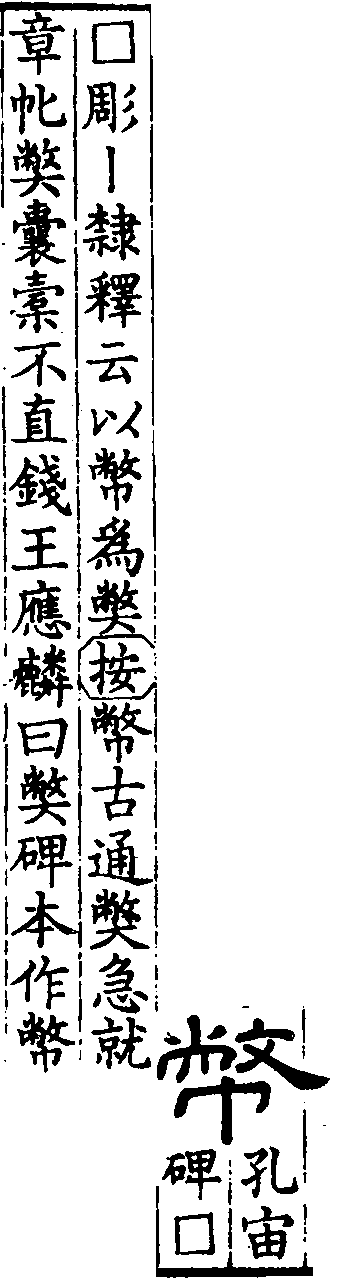 幣
孔宙
碑□
□彫丨隸釋云以幣爲獘按幣古通獘急就
章獘囊橐不直錢王應麟曰獘碑本作幣